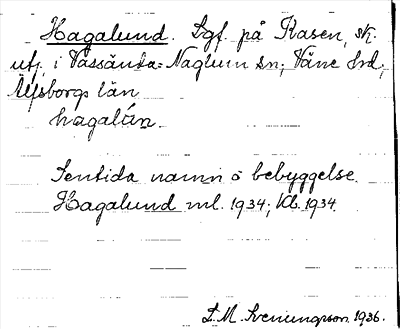 Hagalund. Lgf. på Kasen, sk.
utj. i Vassända-Naglum sn; Väne hd,
Älfsborgs län
hagalán.
Sentida namn o bebyggelse.
Hagalund ml. 1934; Kb. 1934.
L. M. Svenungsson 1936.